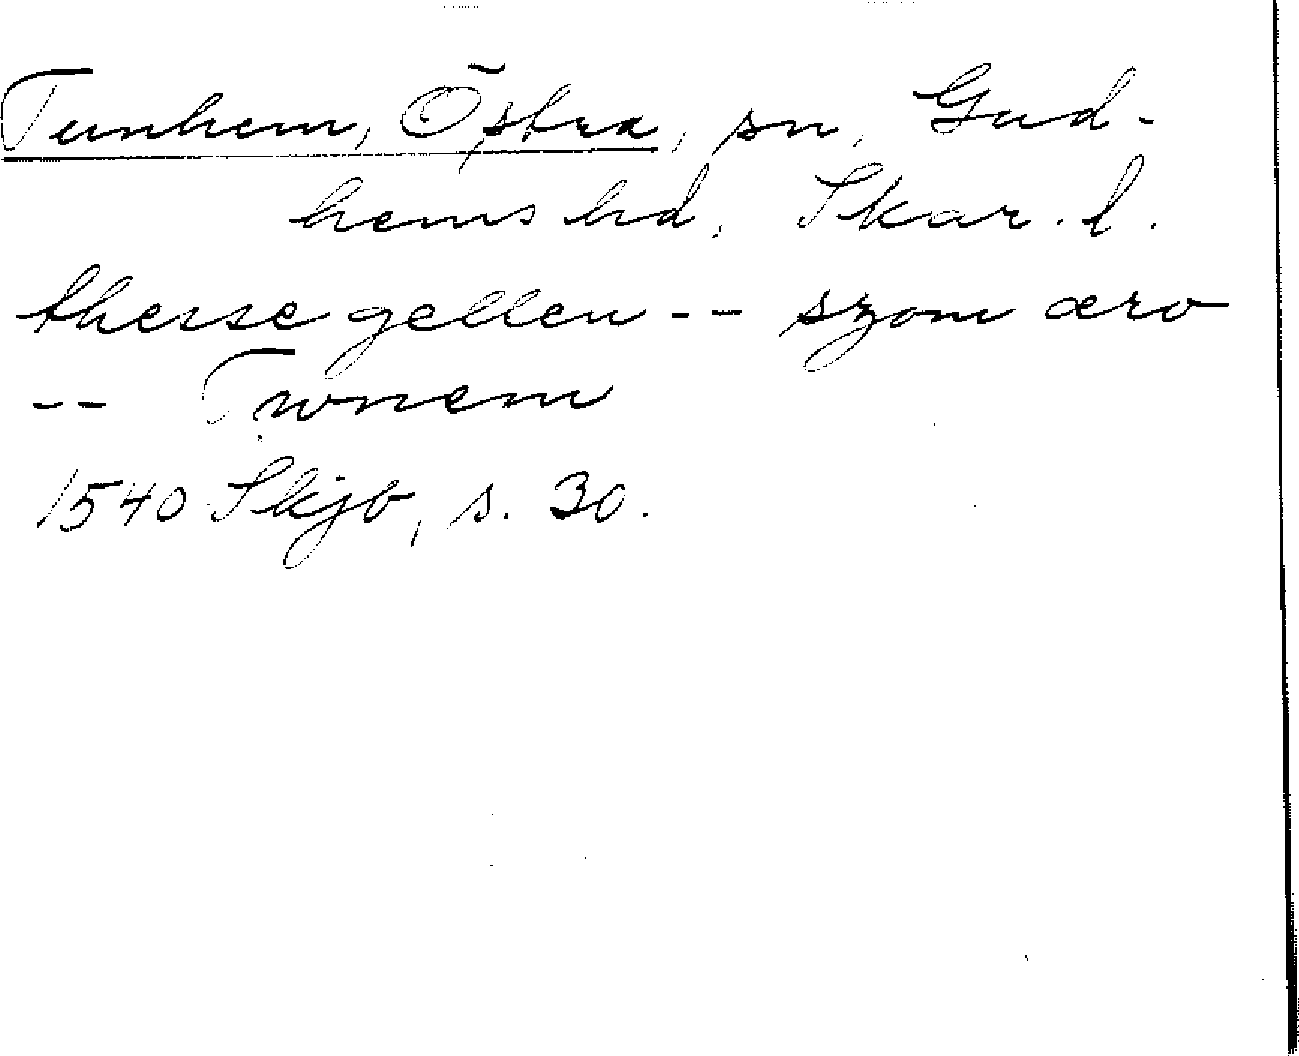 Tunhem, Östra, sn, Gud-
hems hd, Skar. l.
thesse gellen -- szom æro
-- Twnem
1540 Skjb, s. 30.